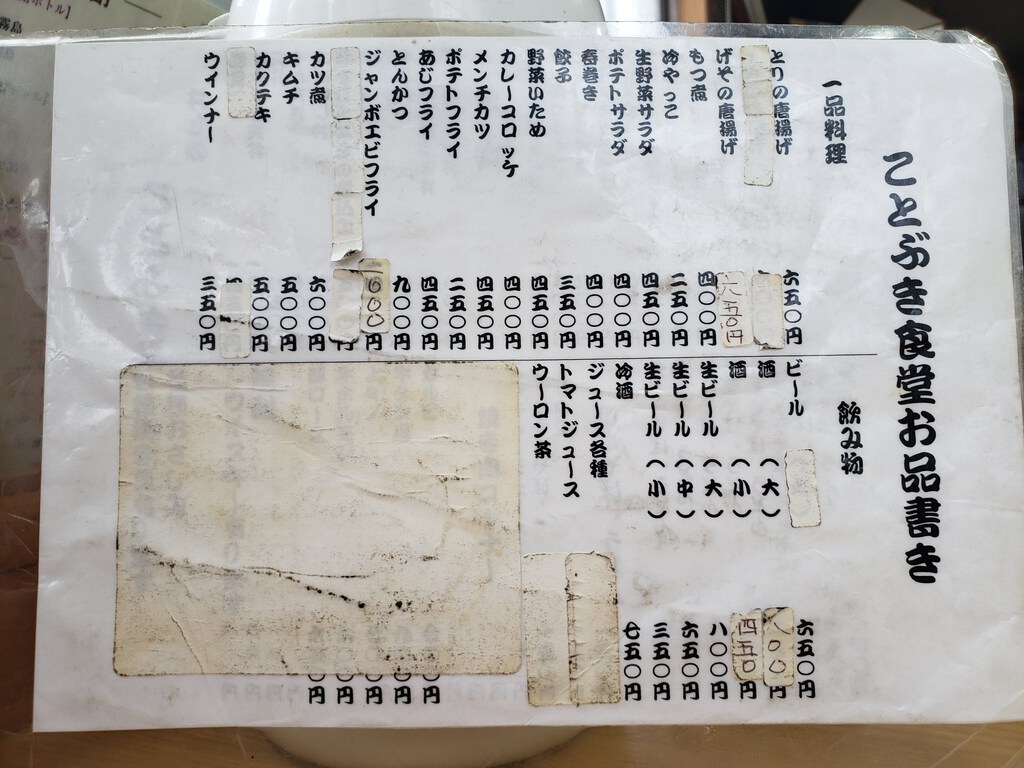 ことぶき食堂お品書き
一品料理
とりの唐揚げ 六五〇円
げその唐揚げ 六五〇円
もつ煮 四〇〇円
冷やっこ 二五〇円
生野菜サラダ 四五〇円
ポテトサラダ 四〇〇円
春巻き 四〇〇円
餃子 三五〇円
野菜いため 四五〇円
カレーコロッケ 四〇〇円
メンチカツ 四五〇円
ポテトフライ 二五〇円
あじフライ 四五〇円
とんかつ 九〇〇円
ジャンボエビフライ
カツ煮 六〇〇円
キムチ 五〇〇円
カクテキ 五〇〇円
ウインナー 三五〇円
飲み物
ビール 六五〇円
酒（大） 八〇〇円
酒（小） 四五〇円
生ビール（大） 八〇〇円
生ビール（中） 六五〇円
生ビール（小） 三五〇円
冷酒 七五〇円
ジュース各種
トマトジュース
ウーロン茶
〇円
〇円
〇円
〇円
〇円